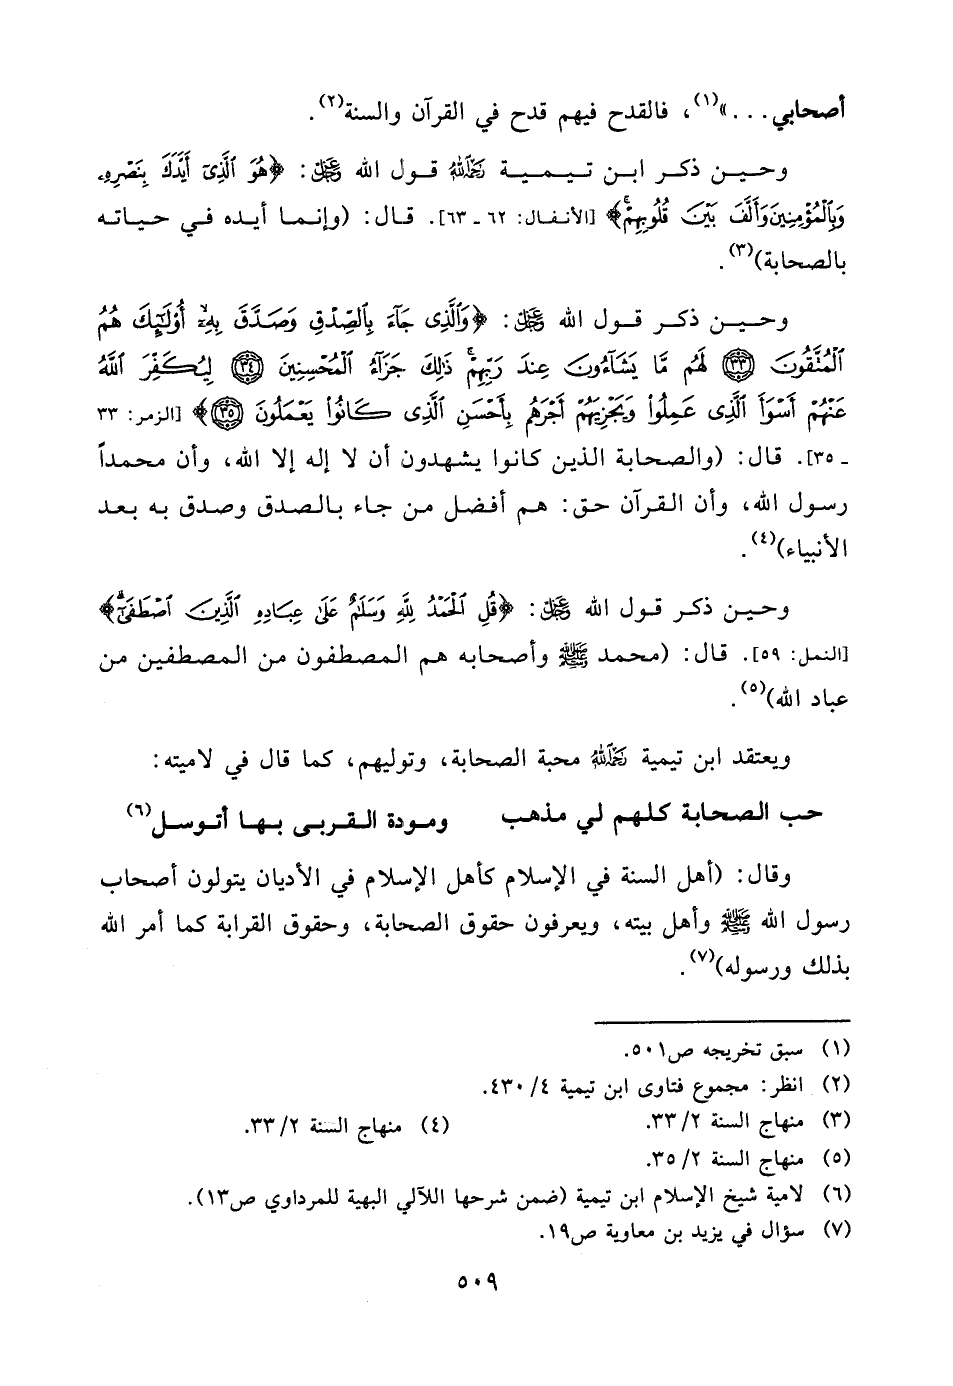 أصحابي...»(١)، فالقدح فيهم قدح في القرآن والسنة(٢).
وحين ذكر ابن تيمية رحمه الله قول الله عز وجل: ﴿هُوَ ٱلَّذِىٓ أَيَّدَكَ بِنَصْرِهِۦ
وَبِٱلْمُؤْمِنِينَ وَأَلَّفَ بَيْنَ قُلُوبِهِمْۚ﴾ [الأنفال: ٦٢ - ٦٣]. قال: (وإنما أيده في حياته
بالصحابة)(٣).
وحين ذكر قول الله عز وجل: ﴿وَٱلَّذِى جَآءَ بِٱلصِّدْقِ وَصَدَّقَ بِهِۦٓ أُو۟لَـٰٓئِكَ هُمُ
ٱلْمُتَّقُونَ ٣٣ لَهُم مَّا يَشَآءُونَ عِندَ رَبِّهِمْۚ ذَٰلِكَ جَزَآءُ ٱلْمُحْسِنِينَ ٣٤ لِيُكَفِّرَ ٱللَّهُ
عَنْهُمْ أَسْوَأَ ٱلَّذِى عَمِلُوا۟ وَيَجْزِيَهُمْ أَجْرَهُم بِأَحْسَنِ ٱلَّذِى كَانُوا۟ يَعْمَلُونَ ٣٥﴾ [الزمر: ٣٣
- ٣٥]. قال: (والصحابة الذين كانوا يشهدون أن لا إله إلا الله، وأن محمداً
رسول الله، وأن القرآن حق: هم أفضل من جاء بالصدق وصدق به بعد
الأنبياء)(٤).
وحين ذكر قول الله عز وجل: ﴿قُلِ ٱلْحَمْدُ لِلَّهِ وَسَلَـٰمٌ عَلَىٰ عِبَادِهِ ٱلَّذِينَ ٱصْطَفَىٰٓۗ﴾
[النمل: ٥٩]. قال: (محمد ﷺ وأصحابه هم المصطفون من المصطفين من
عباد الله)(٥).
ويعتقد ابن تيمية رحمه الله محبة الصحابة، وتوليهم، كما قال في لاميته:
حب الصحابة كلهم لي مذهب ومودة القربى بها أتوسل(٦)
وقال: (أهل السنة في الإسلام كأهل الإسلام في الأديان يتولون أصحاب
رسول الله ﷺ وأهل بيته، ويعرفون حقوق الصحابة، وحقوق القرابة كما أمر الله
بذلك ورسوله)(٧).
(١) سبق تخريجه ص٥٠١.
(٢) انظر: مجموع فتاوى ابن تيمية ٤/ ٤٣٠.
(٣) منهاج السنة ٢/ ٣٣. (٤) منهاج السنة ٢/ ٣٣.
(٥) منهاج السنة ٢/ ٣٥.
(٦) لامية شيخ الإسلام ابن تيمية (ضمن شرحها اللآلي البهية للمرداوي ص١٣).
(٧) سؤال في يزيد بن معاوية ص١٩.
٥٠٩